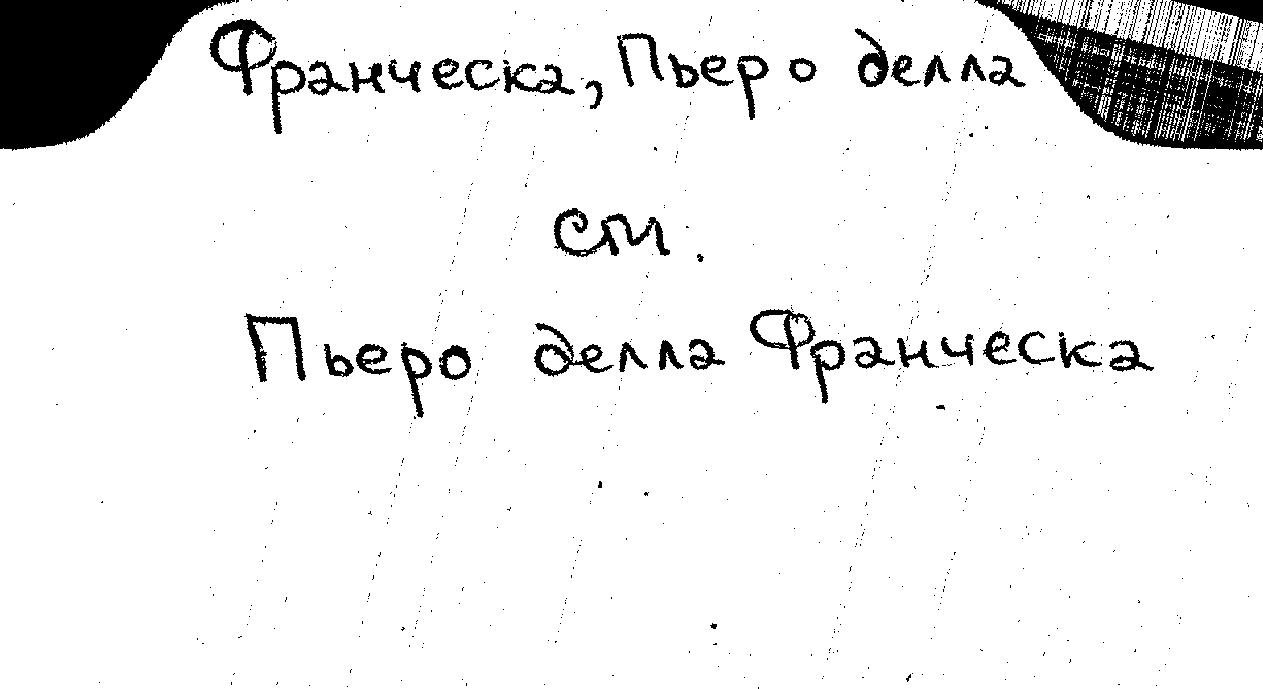 Франческа, Пьеро делла
см.
Пьеро делла Франческа